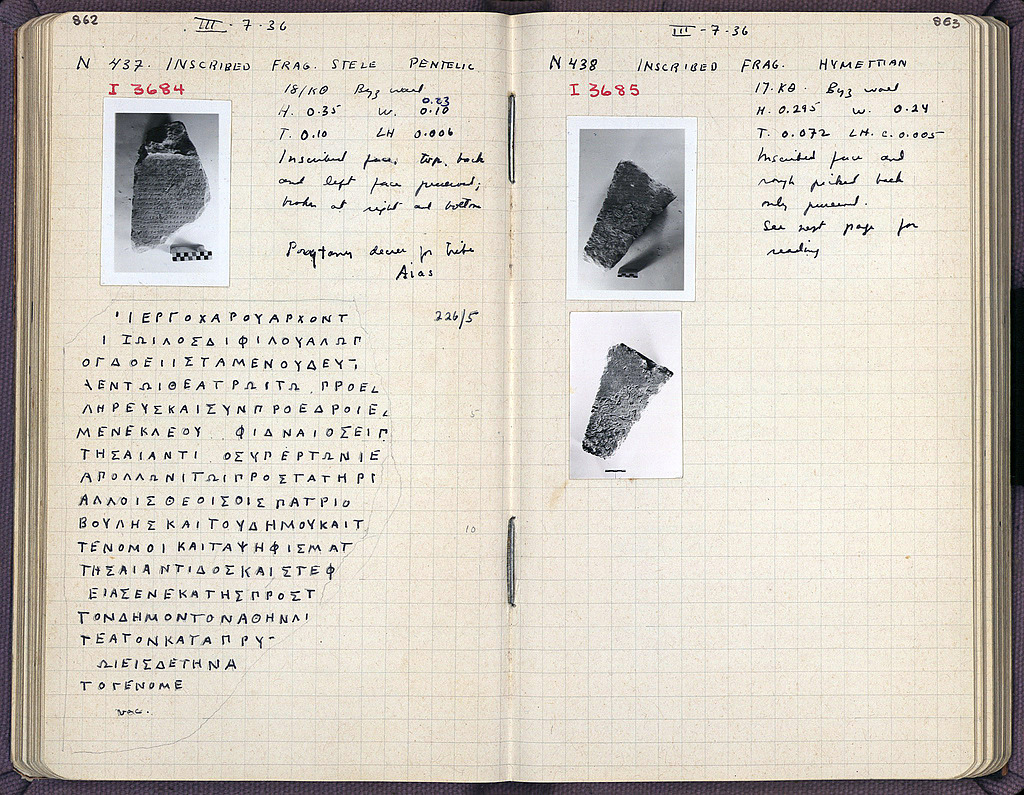 862
III - 7 - 36
N 437. INSCRIBED FRAG. STELE PENTELIC
I 3684
18/ΚΘ Byz wall
0.23
H. 0.35 W. 0.10
T. 0.10 LH 0.006
Inscribed face, top, back
and left face preserved;
broken at right and bottom
Prytany decree for tribe
Aias
ΙΕΡΓΟΧΑΡΟΥΑΡΧΟΝΤ 226/5
Ι ΙΩΙΛΟΣΔΙΦΙΛΟΥΑΛΩΠ
ΟΓΔΟΕΙΙΣΤΑΜΕΝΟΥΔΕΥ
ΛΕΝΤΩΙΘΕΑΤΡΩΙΤΩ ΠΡΟΕ
ΛΗΡΕΥΣΚΑΙΣΥΝΠΡΟΕΔΡΟΙΕ 5
ΜΕΝΕΚΛΕΟΥ ΦΙΔΝΑΙΟΣΕΙΠ
ΤΗΣΑΙΑΝΤΙ ΟΣΥΠΕΡΤΩΝΙΕ
ΑΠΟΛΛΩΝΙΤΩΙΠΡΟΣΤΑΤΗΡΙ
ΑΛΛΟΙΣ ΘΕΟΙΣΟΙΣ ΠΑΤΡΙΟ
ΒΟΥΛΗΣ ΚΑΙΤΟΥΔΗΜΟΥΚΑΙΤ 10
ΤΕΝΟΜΟΙ ΚΑΙΤΑΨΗΦΙΣΜΑΤ
ΤΗΣΑΙΑΝΤΙΔΟΣΚΑΙΣΤΕΦ
ΕΙΑΣΕΝΕΚΑΤΗΣΠΡΟΣΤ
ΤΟΝΔΗΜΟΝΤΟΝΑΘΗΝΑΙ
ΤΕΑΤΟΝΚΑΤΑΠΡΥ
ΩΙΕΙΣΔΕΤΗΝΑ
ΤΟΓΕΝΟΜΕ
vac.
863
III - 7 - 36
N 438 INSCRIBED FRAG. HYMETTIAN
I 3685
17·ΚΘ· Byz wall
H. 0.295 W. 0.24
T. 0.072 LH. c. 0.005
Inscribed face and
rough picked back
only preserved.
See next page for
reading